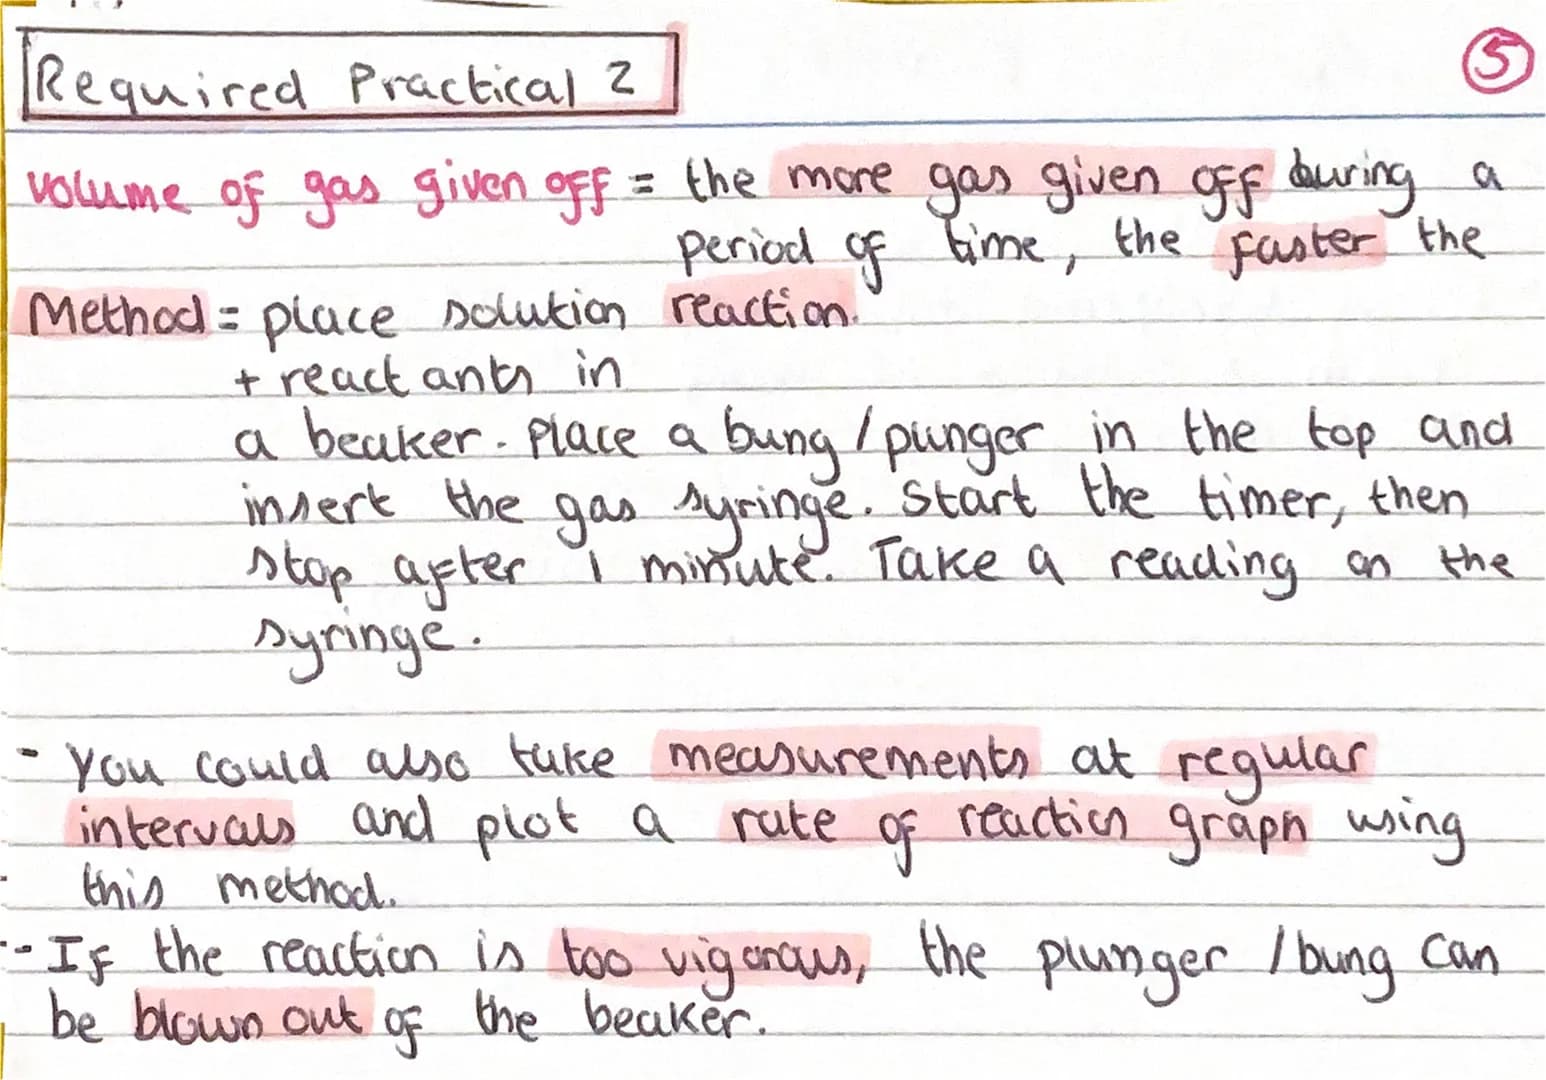 Required Practical 2
5
volume of gas given off = the more gas given off during a
period of time, the faster the
reaction.
Method = place solution
+ reactants in
a beaker. Place a bung / punger in the top and
insert the gas syringe. Start the timer, then
stop after 1 minute. Take a reading on the
syringe.
- You could also take measurements at regular
intervals and plot a rate of reaction graph using
this method.
- If the reaction is too vigorous, the plunger / bung can
be blown out of the beaker.